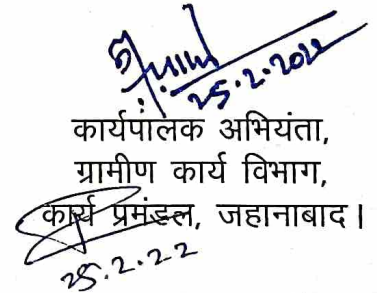 25.2.2022
कार्यपालक अभियंता,
ग्रामीण कार्य विभाग,
कार्य प्रमंडल, जहानाबाद।
25.2.22